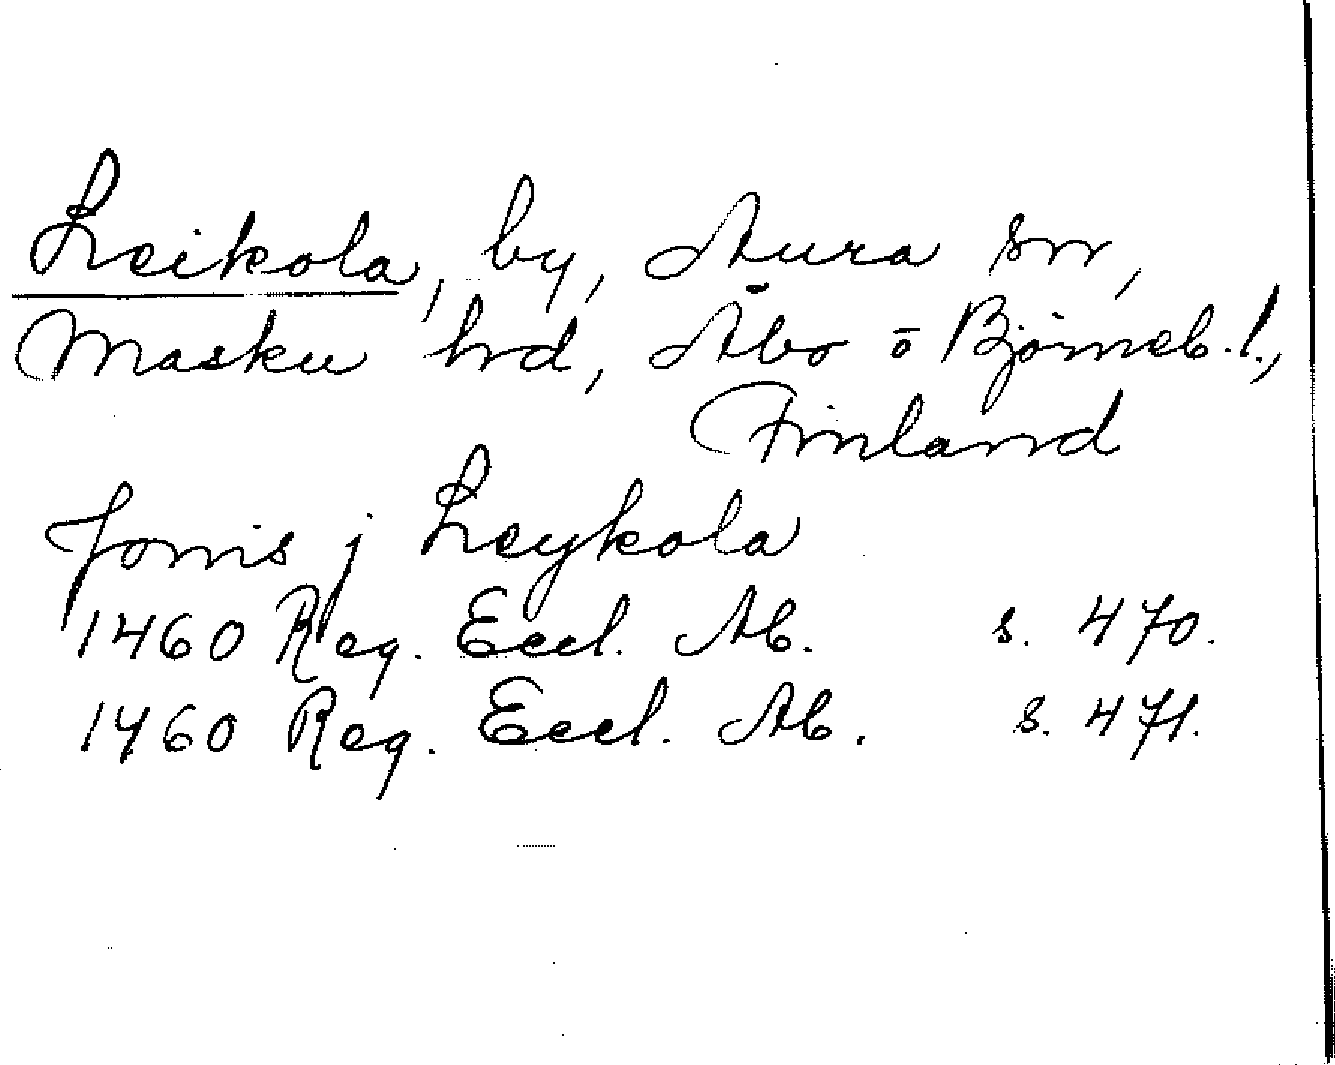 Leikola, by, Aura sn,
Masku hd, Åbo o Björneb. l.,
Finland
Jönis j Leykola
1460 Reg. Eccl. Ab. s. 470.
1460 Reg. Eccl. Ab. s. 471.